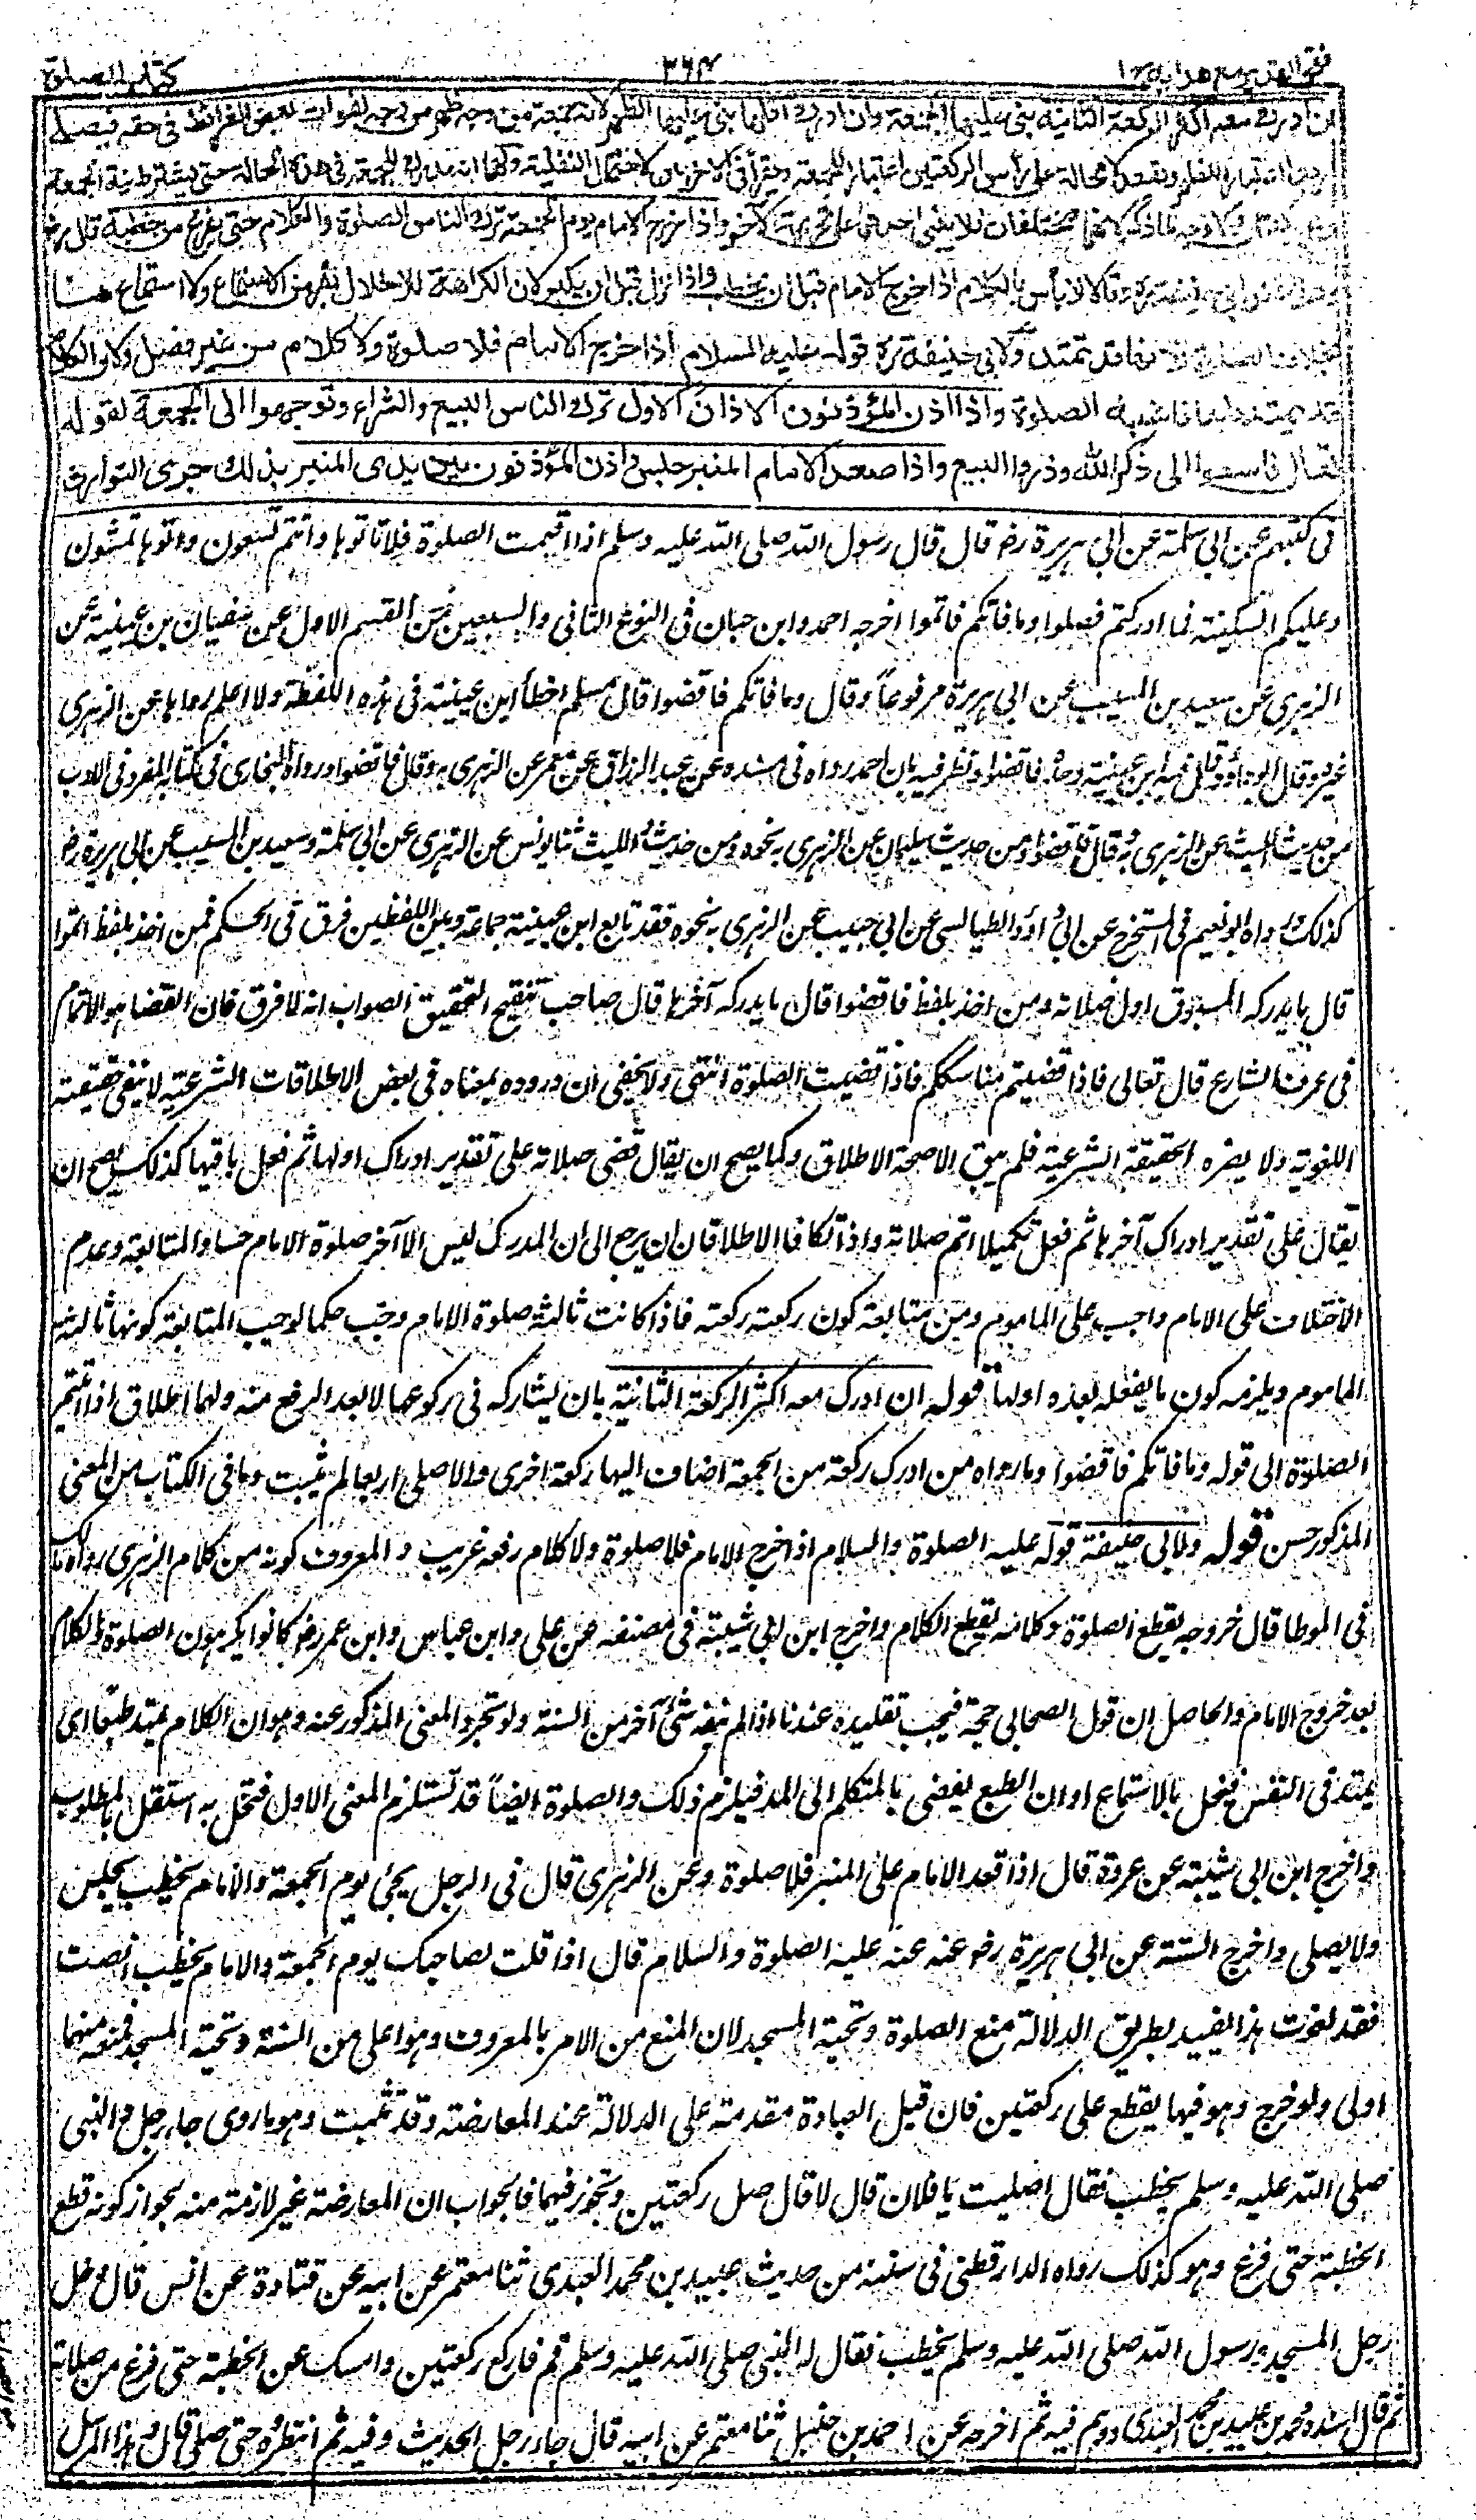 فتح القدير مع هدايه ج ١
٣٦٤
كتاب الصلوة
ان ادرك معه اكثر الركعة الثانية بنى عليها الجمعة وان ادرك اقلها بنى عليها الظهر لانه جمعة من وجه ظهر من وجه لفوات بعض الشرائط في حقه فيصلي
اربعا اعتبارا للظهر ويقعد لا محالة على رأس الركعتين اعتبارا للجمعة ويقرأ في الاخريين لاحتمال النفلية ولهما انه مدرك للجمعة في هذه الحالة حتى يشترط نية الجمعة
وهي ركعتان ولا وجه لما ذكر لانهما مختلفان فلا يبني احدهما على تحريمة الآخر واذا خرج الامام يوم الجمعة ترك الناس الصلوة والكلام حتى يفرغ من خطبته قال رض
وهذا عند ابي حنيفة ره وقالا لا بأس بالكلام اذا خرج الامام قبل ان يخطب واذا نزل قبل ان يكبر لان الكراهة للاخلال بفرض الاستماع ولا استماع هنا
بخلاف الصلوة لانها قد تمتد ولابي حنيفة ره قوله عليه السلام اذا خرج الامام فلا صلوة ولا كلام من غير فصل ولان الكلام
قد يمتد طبعا فاشبه الصلوة واذا اذن المؤذنون الاذان الاول ترك الناس البيع والشراء وتوجهوا الى الجمعة لقوله
تعالى فاسعوا الى ذكر الله وذروا البيع واذا صعد الامام المنبر جلس واذن المؤذنون بين يدي المنبر بذلك جرى التوارث
في كتبهم عن ابي سلمة عن ابي هريرة رض قال قال رسول الله صلى الله عليه وسلم اذا اقيمت الصلوة فلا تاتوها وانتم تسعون واتوها تمشون
وعليكم السكينة فما ادركتم فصلوا وما فاتكم فاتموا اخرجه احمد وابن حبان في النوع الثاني والسبعين من القسم الاول عن سفيان بن عيينة عن
الزهري عن سعيد بن المسيب عن ابي هريرة مرفوعاً وقال وما فاتكم فاقضوا قال مسلم اخطأ ابن عيينة في هذه اللفظة ولا اعلم رواها عن الزهري
غيره وقال ابو داؤد قال فيه ابن عيينة وحده فاقضوا ونظر فيه بان احمد رواه في مسنده عن عبد الرزاق عن معمر عن الزهري به وقال فاقضوا ورواه البخاري في كتابه المفرد في الادب
من حديث الليث عن الزهري به وقال فاقضوا ومن حديث سليمان عن الزهري به نحوه ومن حديث الليث ثنا يونس عن الزهري عن ابي سلمة وسعيد بن المسيب عن ابي هريرة رض
كذلك رواه ابو نعيم في المستخرج عن ابي داؤد الطيالسي عن ابي حبيب عن الزهري به نحوه فقد تابع ابن عيينة جماعة وبين اللفظين فرق في الحكم فمن اخذ بلفظ اتموا
قال ما يدركه المسبوق اول صلاته ومن اخذ بلفظ فاقضوا قال ما يدركه آخرها قال صاحب تنقيح التحقيق الصواب انه لا فرق فان القضا هو الاتمام
في عرف الشارع قال تعالى فاذا قضيتم مناسككم فاذا قضيت الصلوة انتهى ولا يخفى ان وروده بمعناه في بعض الاطلاقات الشرعية لا ينفي حقيقته
اللغوية ولا يصره الحقيقة الشرعية فلم يبق الا صحة الاطلاق وكما يصح ان يقال قضى صلاته على تقدير ادراك اولها ثم فعل باقيها كذلك يصح ان
يقال على تقدير ادراك آخرها ثم فعل تكميلا اتم صلاته واذا تكافا الاطلاقان يرجع الى ان المدرك ليس الا آخر صلوة الامام حسا والمتابعة وعدم
الاختلاف على الامام واجب على الماموم ومن متابعته كون ركعته ركعته فاذا كانت ثالثة صلوة الامام وجب حكما لوجوب المتابعة كونها ثالثة
الماموم ويلزمه كون ما يفعله بعده اولها قوله ان ادرك معه اكثر الركعة الثانية بان يشاركه في ركوعها لا بعد الرفع منه ولهما اطلاق اذا اتيتم
الصلوة الى قوله وما فاتكم فاقضوا وما رواه من ادرك ركعة من الجمعة اضاف اليها ركعة اخرى والا صلى اربعا لم يثبت وما في الكتاب من المعنى
المذكور حسن قوله ولابي حنيفة قوله عليه الصلوة والسلام اذا خرج الامام فلا صلوة ولا كلام رفعه غريب والمعروف كونه من كلام الزهري رواه مالك
في الموطا قال خروجه يقطع الصلوة وكلامه يقطع الكلام واخرج ابن ابي شيبة في مصنفه عن علي وابن عباس وابن عمر رض كانوا يكرهون الصلوة والكلام
بعد خروج الامام والحاصل ان قول الصحابي حجة فيجب تقليده عندنا اذا لم ينفه شئ آخر من السنة ولو تجرد المعنى المذكور عنه وهو ان الكلام يمتد طبعًا اي
يمتد في النفس فيخل بالاستماع او ان الطبع يفضي بالمتكلم الى المد فيلزم ذلك والصلوة ايضاً قد تستلزم المعنى الاول فتخل به استقل بالمطلوب
واخرج ابن ابي شيبة عن عروة قال اذا قعد الامام على المنبر فلا صلوة وعن الزهري قال في الرجل يجئ يوم الجمعة والامام يخطب يجلس
ولا يصلي واخرج الستة عن ابي هريرة رض عنه عنه عليه الصلوة والسلام قال اذا قلت لصاحبك يوم الجمعة والامام يخطب انصت
فقد لغوت هذا يفيد بطريق الدلالة منع الصلوة وتحية المسجد لان المنع من الامر بالمعروف وهو اعلى من السنة وتحية المسجد فمنعه منهما
اولى ولو خرج وهو فيها يقطع على ركعتين فان قيل العبادة مقدمة على الدلالة عند المعارضة وقد ثبتت وهو ما روى جاء رجل والنبي
صلى الله عليه وسلم يخطب فقال اصليت يا فلان قال لا قال صل ركعتين وتجوز فيهما فالجواب ان المعارضة غير لازمة منه لجواز كونه قطع
الخطبة حتى فرغ وهو كذلك رواه الدارقطني في سننه من حديث عبيد بن محمد العبدي ثنا معتمر عن ابيه عن قتادة عن انس قال دخل
رجل المسجد ورسول الله صلى الله عليه وسلم يخطب فقال له النبي صلى الله عليه وسلم قم فاركع ركعتين وامسك عن الخطبة حتى فرغ من صلاته
ثم قال اسنده محمد بن عبيد بن محمد العبدي ووهم فيه ثم اخرجه عن احمد بن حنبل ثنا معتمر عن ابيه قال جاء رجل الحديث وفيه ثم انتظره حتى صلى قال وهذا المرسل